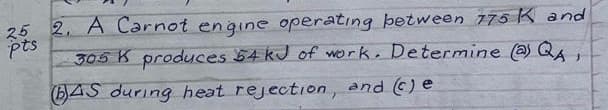 25 pts
2. A Carnot engine operating between 775 K and
305 K produces 54 kJ of work. Determine (a) QA,
(b) ΔS during heat rejection, and (c) e